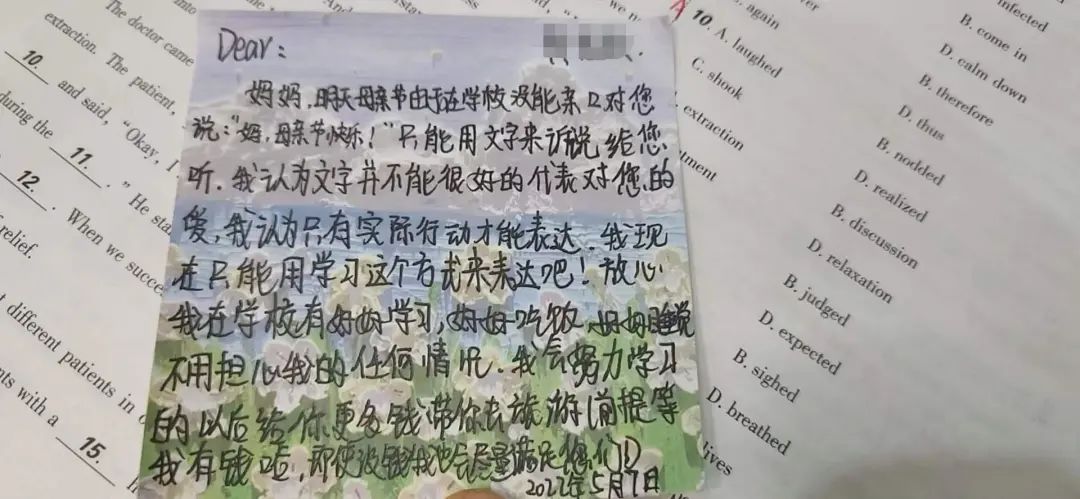 The doctor came
extraction. The patient,
10.
and said, "Okay, I
during the
11.
." He sta
12.
. When we succe
relief.
t different patients in
nts with a
15.
Dear：
妈妈，明天母亲节由于在学校没能亲口对您
说：“妈，母亲节快乐！”只能用文字来诉说给您
听.我认为文字并不能很好的代表对您的
爱，我认为只有实际行动才能表达.我现
在只能用学习这个方式来表达吧！放心
我在学校有好好学习，好好吃饭，好好睡觉
不用担心我的任何情况.我会努力学习
的以后给你更多钱带你去旅游(前提等
我有钱哈，即使没钱我也会尽量满足您们)
2022年5月7日
10. A. laughed
C. shook
. extraction
again
B. therefore
D. thus
B. nodded
D. realized
B. discussion
D. relaxation
B. judged
D. expected
B. sighed
D. breathed
lives
infected
B. come in
D. calm down